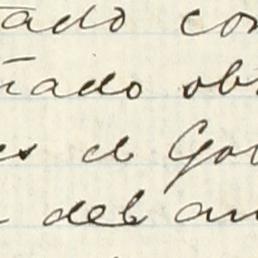 tado con
ñado ob
es de Go
del an